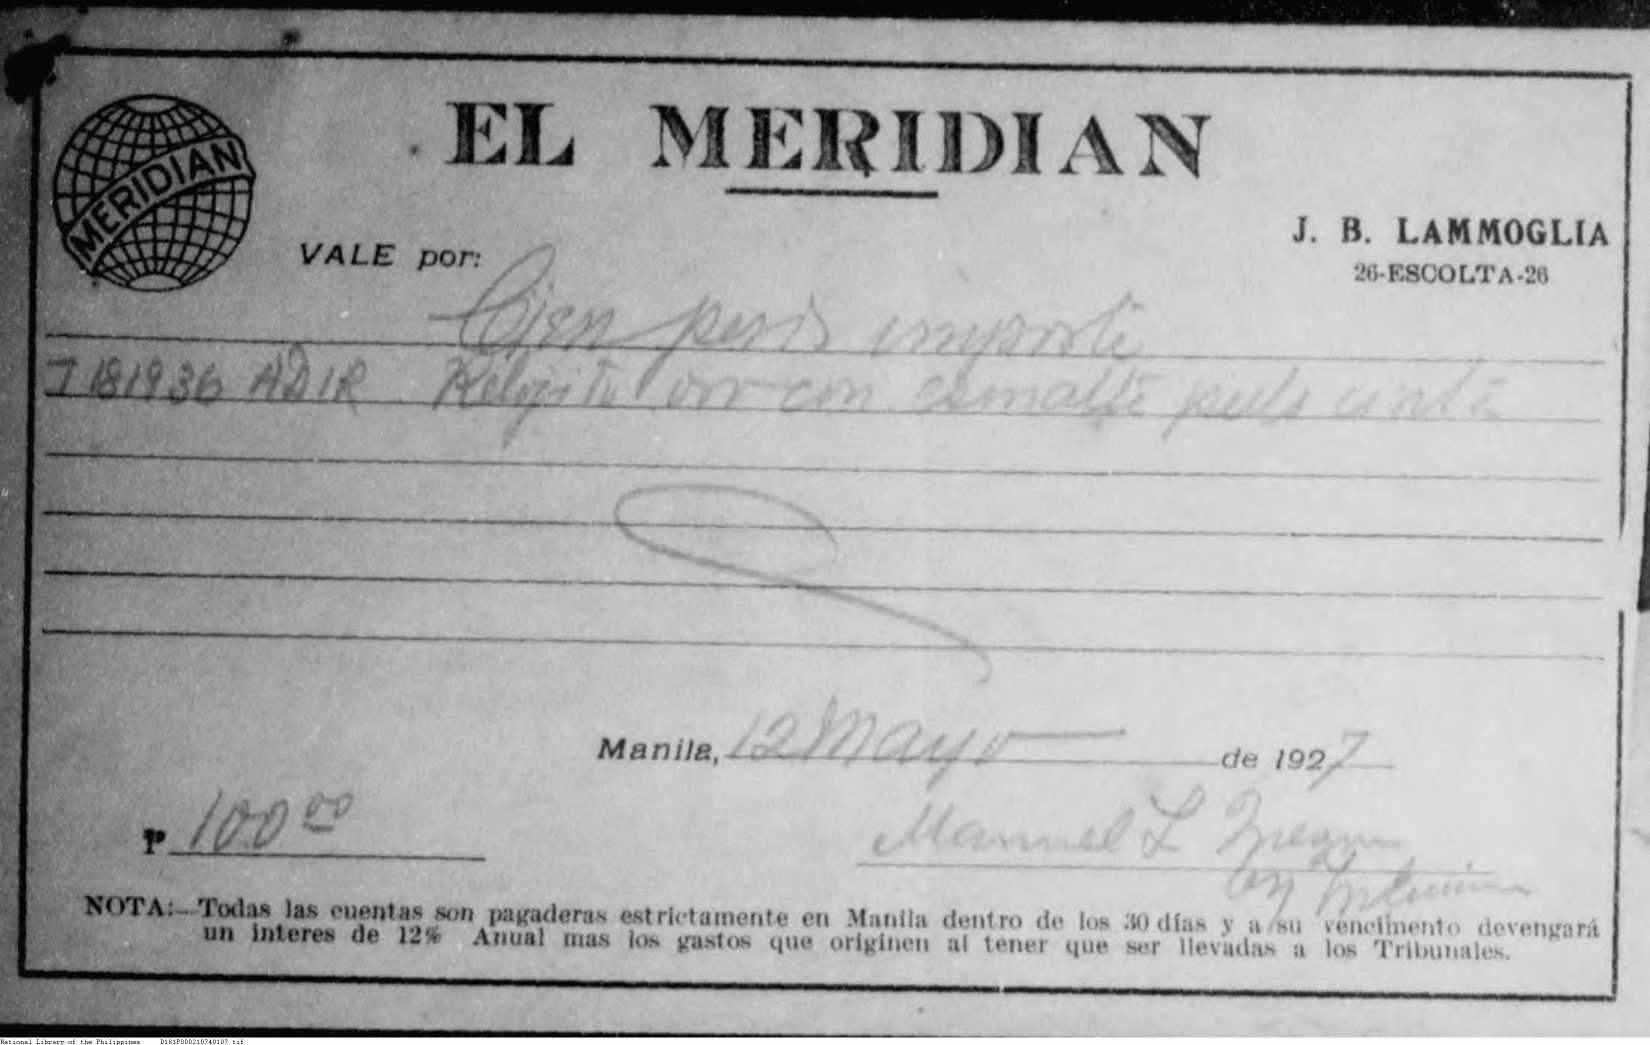 EL MERIDIAN
MERIDIAN
J. B. LAMMOGLIA
26-ESCOLTA-26
VALE por:
Cien pesos importe
181936 ADIR Relojito oro con esmalte
Manila, 12 Mayo de 1927
₱ 100 00
Manuel L
by
NOTA:—Todas las cuentas son pagaderas estrictamente en Manila dentro de los 30 días y a su vencimento devengará
un interes de 12% Anual mas los gastos que originen al tener que ser llevadas a los Tribunales.
National Library of the Philippines D181P000210740107.tif